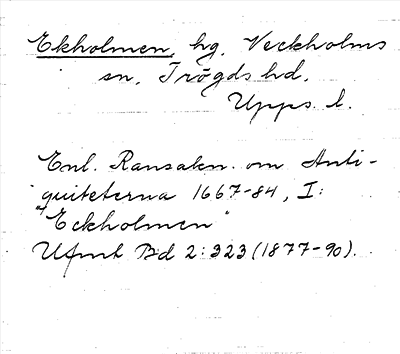 Ekholmen, hg. Veckholms
sn, Trögds hd.
Upps. l.
Enl. Ransakn. om Anti-
quiteterna 1667-84, I:
"Eckholmen"
Ufmt Bd 2:323 (1877-90).